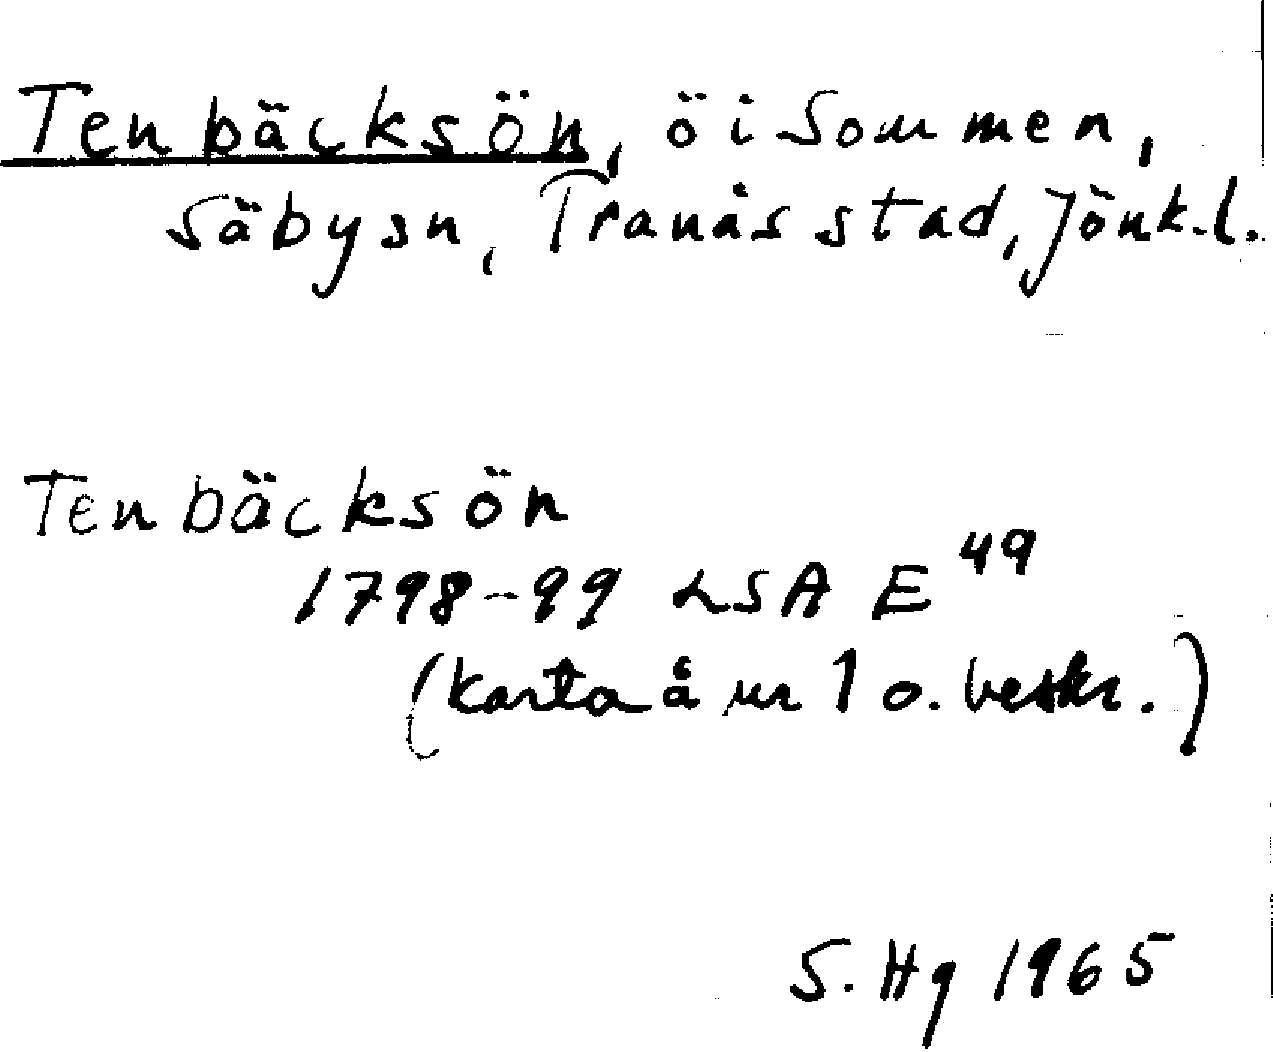 Tenbäcksön, ö i Sommen,
Säby sn, Tranås stad, Jönk. l.
Tenbäcksön
1798-99 LSA E 49
(karta å nr 1 o. beskr.)
S. Hg 1965